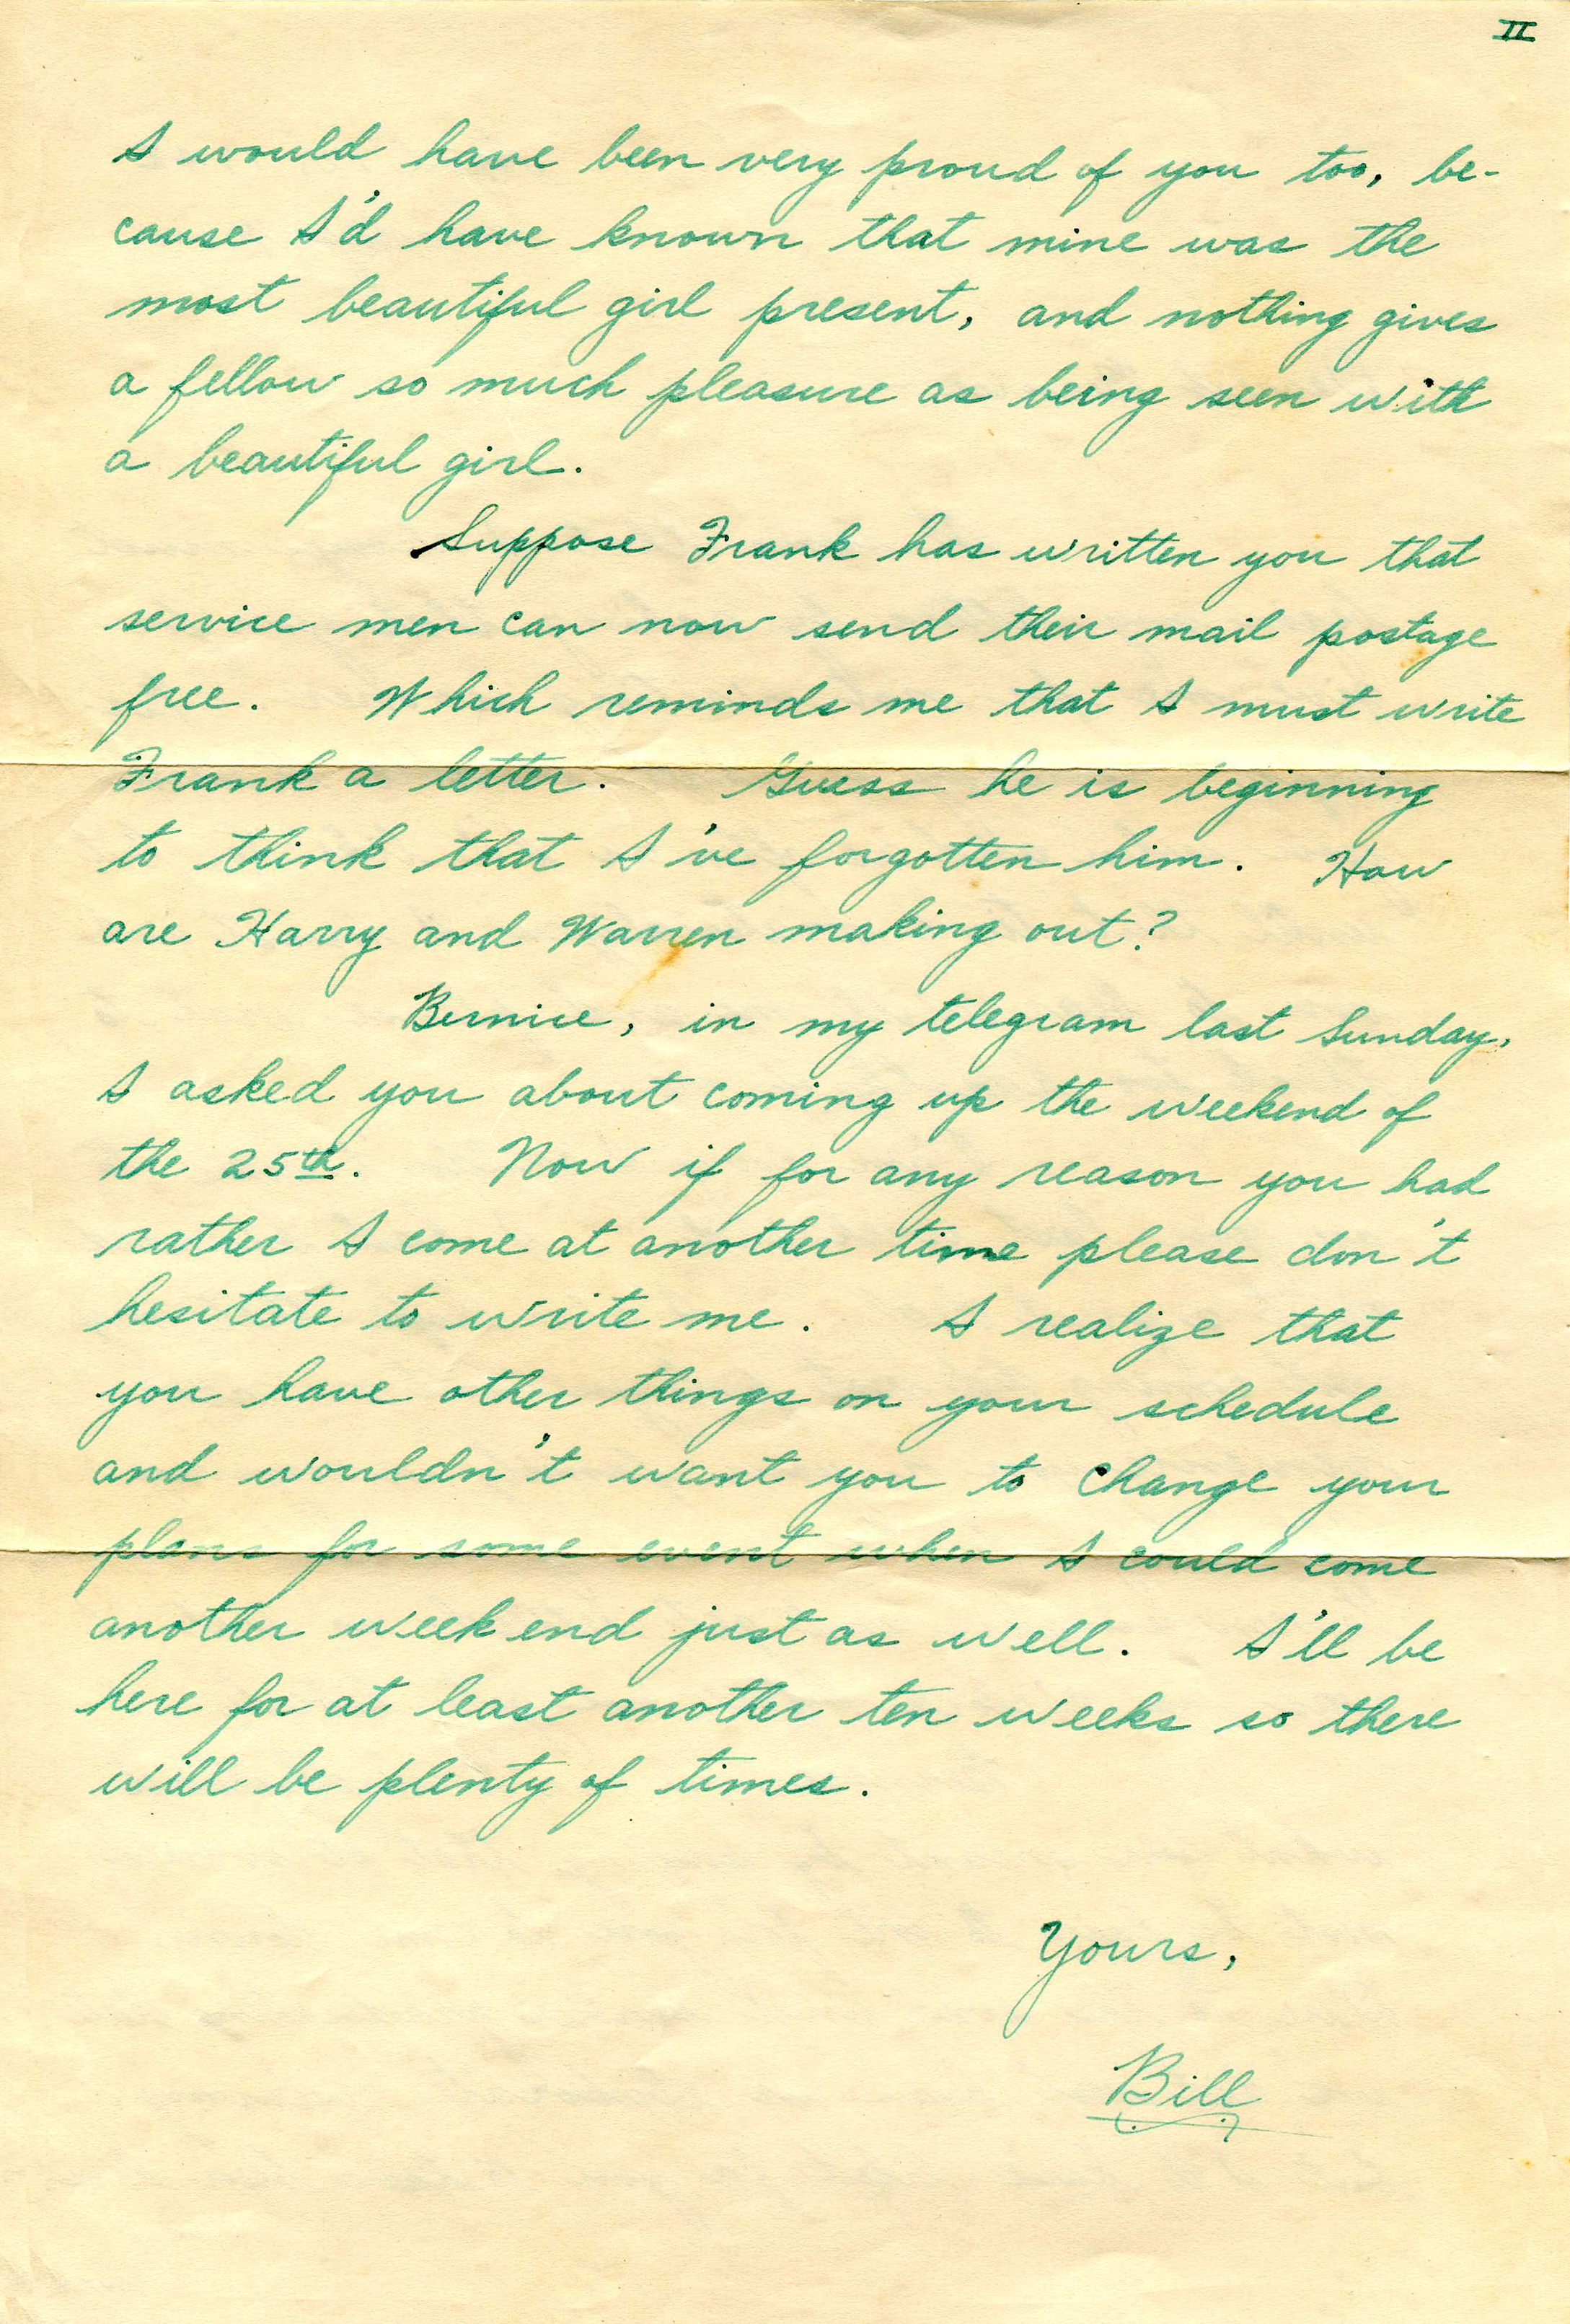 II
I would have been very proud of you too, be-
cause I'd have known that mine was the
most beautiful girl present, and nothing gives
a fellow so much pleasure as being seen with
a beautiful girl.
Suppose Frank has written you that
service men can now send their mail postage
free. Which reminds me that I must write
Frank a letter. Guess he is beginning
to think that I've forgotten him. How
are Harry and Warren making out?
Bernice, in my telegram last Sunday,
I asked you about coming up the weekend of
the 25th. Now if for any reason you had
rather I come at another time please don't
hesitate to write me. I realize that
you have other things on your schedule
and wouldn't want you to change your
plans for some event when I could come
another week end just as well. I'll be
here for at least another ten weeks so there
will be plenty of times.
Yours,
Bill